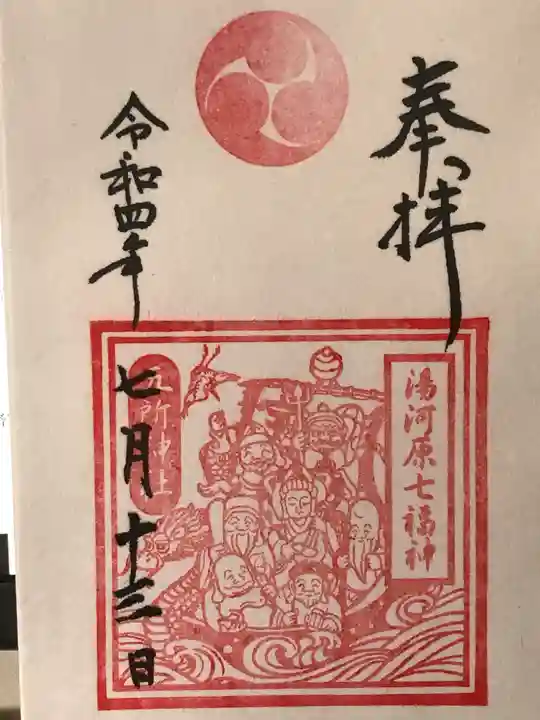 奉拝
湯河原七福神
五所神社
令和四年七月十三日